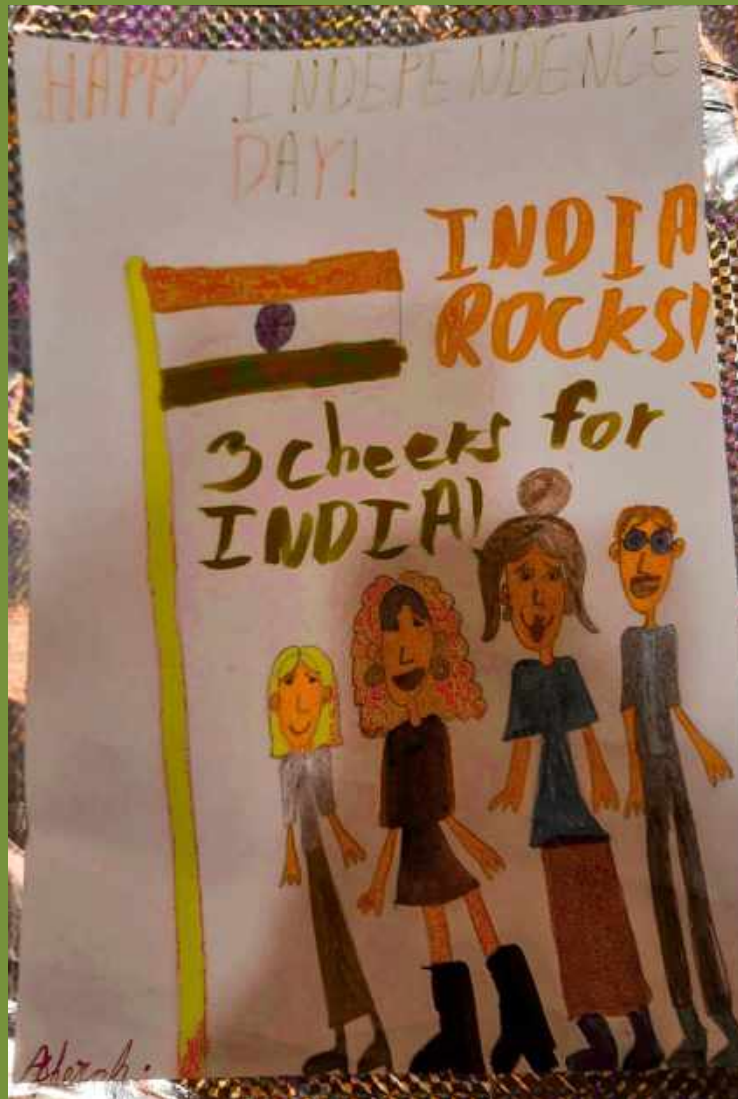 HAPPY INDEPENDENCE
DAY!
INDIA
ROCKS!
3 cheers for
INDIA!